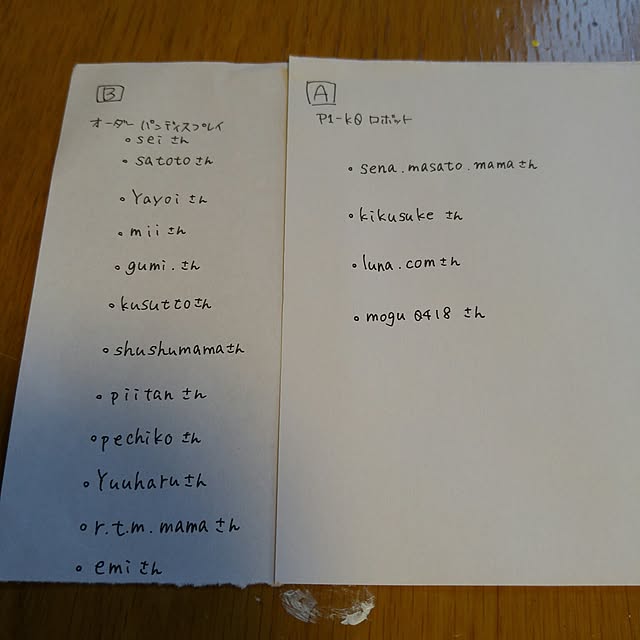 B
オーダー パンディスプレイ
。sei さん
。satoto さん
。Yayoi さん
。mii さん
。gumi. さん
。kusuttoさん
。shushumamaさん
。piitan さん
。pechiko さん
。Yuuharuさん
。r.t.m.mamaさん
。emiさん
A
P1-kQ ロボット
。sena.masato.mamaさん
。kikusuke さん
。luna.comさん
。mogu 0418 さん